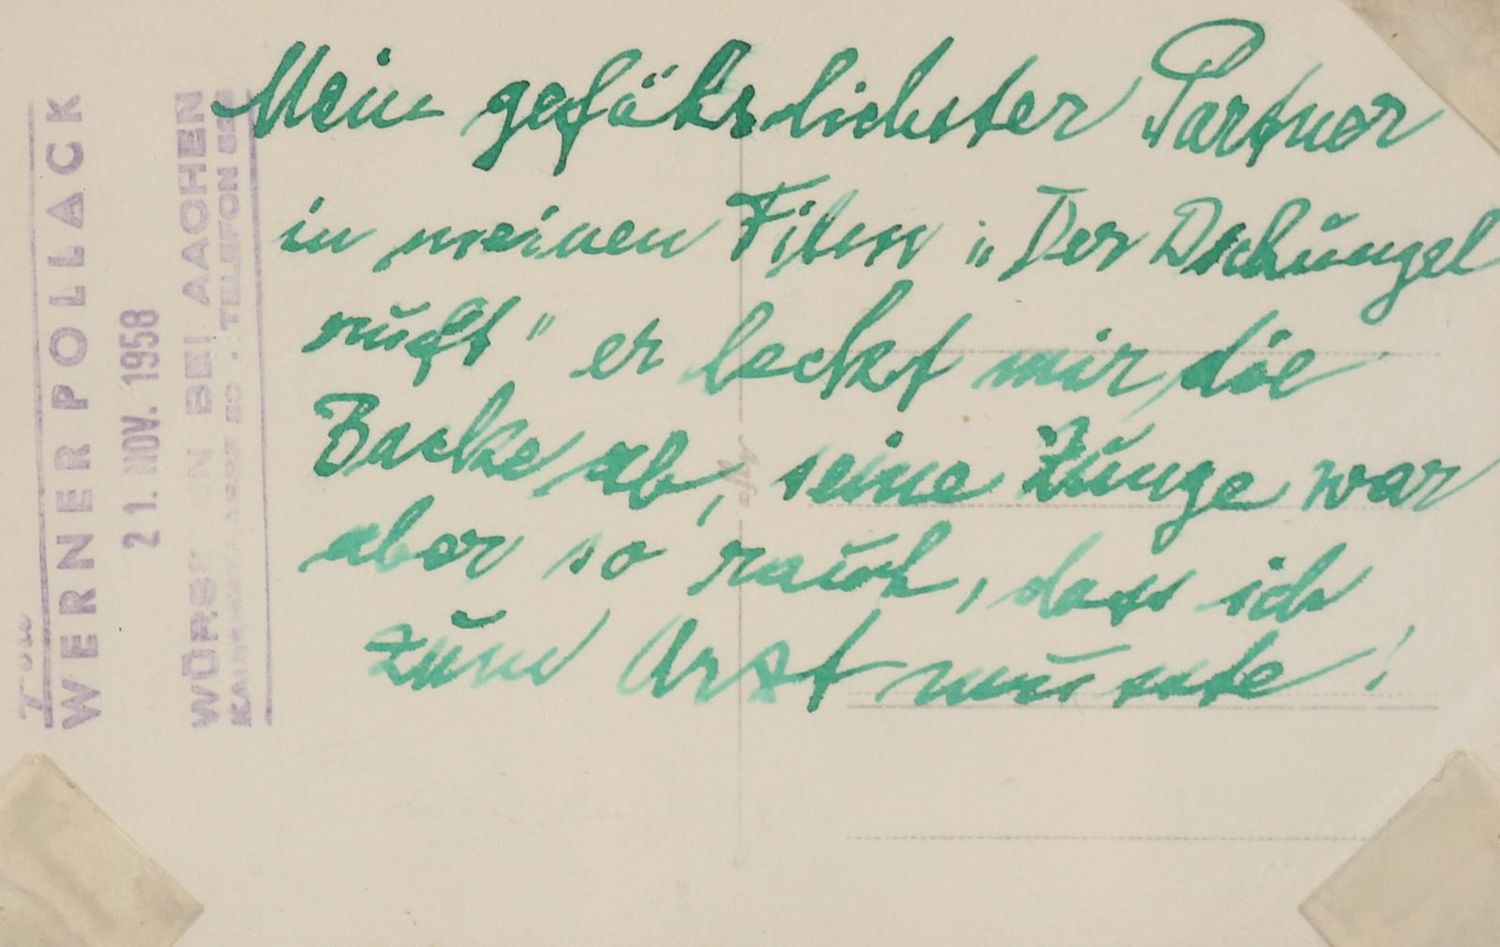 Mein gefährlichster Partner
in meinen Film „Der Dschungel
ruft" er leckt mir die
Backe ab, seine Zunge war
aber so rauh, dass ich
zum Arzt musste!
WERNER POLLACK
21. NOV. 1958
BEI AACHEN
TELEFON